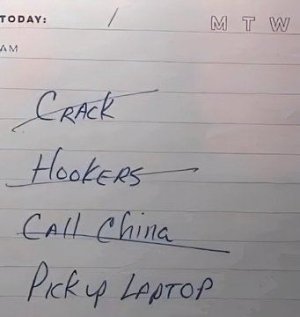 TODAY: / M T W
AM
CRACK
HOOKERS
CALL China
PICK UP LAPTOP